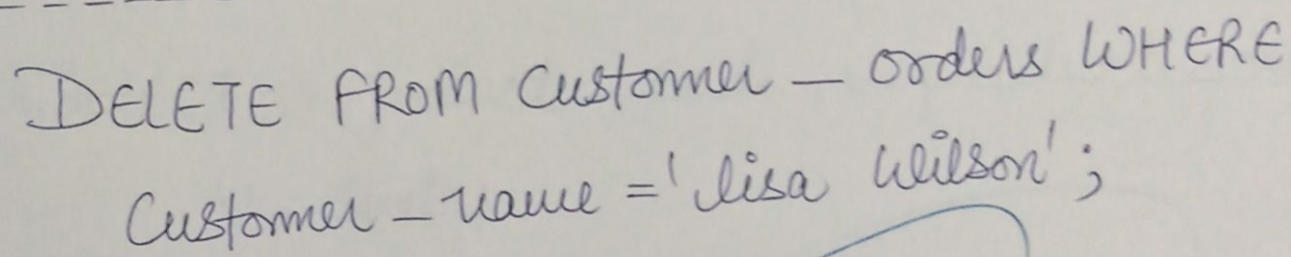 DELETE FROM Customer_orders WHERE
Customer_name = 'lisa Wilson';